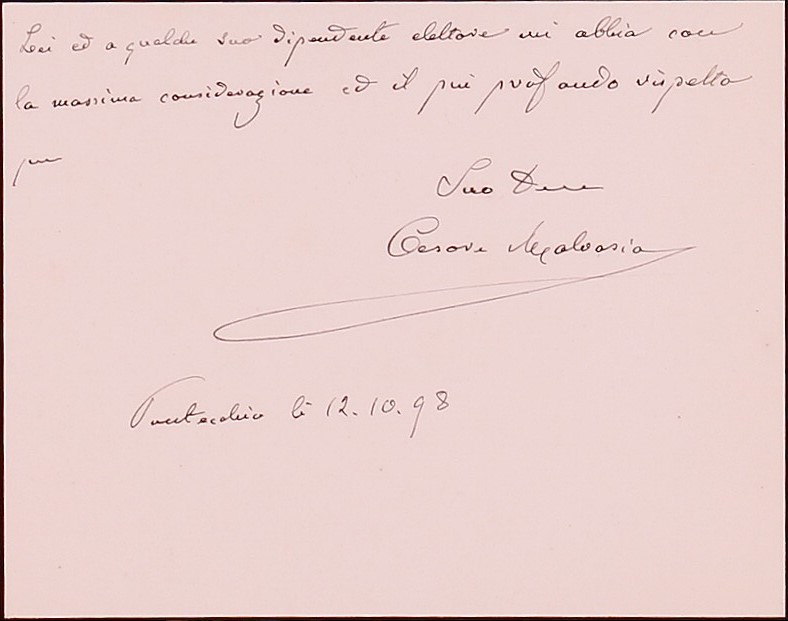 Lei ed a qualche suo dipendente elettore mi abbia con
la massima considerazione ed il più profondo rispetto
per
Suo Dev
Cesare Malvasia
Pontecchio li 12.10.98